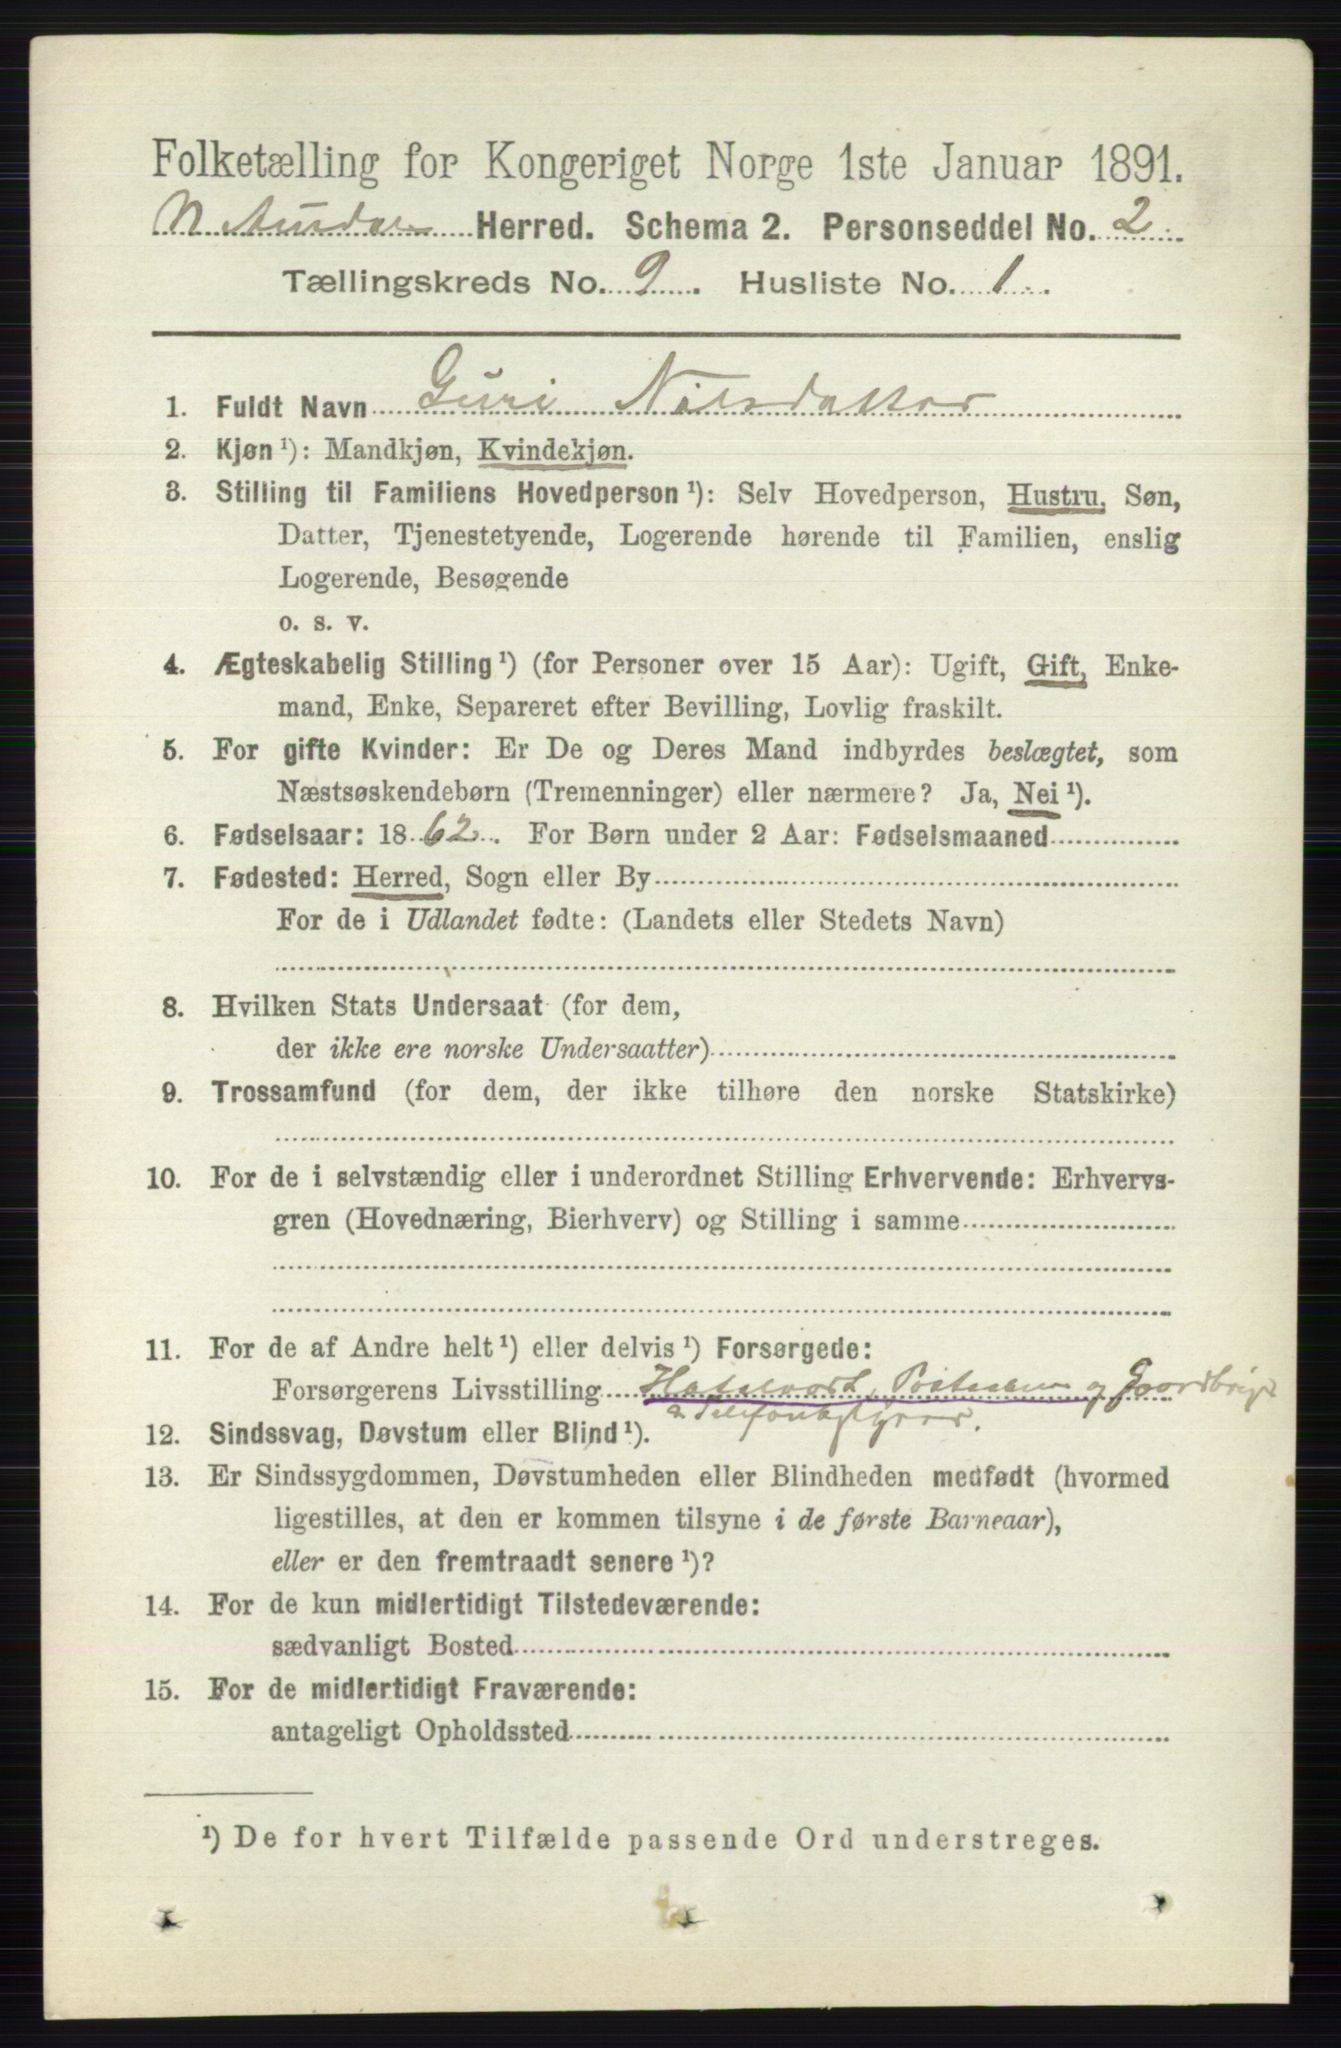 Folketælling for Kongeriget Norge 1ste Januar 1891.
N Aurdal Herred. Schema 2. Personseddel No. 2
Tællingskreds No. 9. Husliste No. 1.
1. Fuldt Navn Guri Nilsdatter
2. Kjøn ¹): Mandkjøn, Kvindekjøn.
3. Stilling til Familiens Hovedperson ¹): Selv Hovedperson, Hustru, Søn,
Datter, Tjenestetyende, Logerende hørende til Familien, enslig
Logerende, Besøgende
o. s. v.
4. Ægteskabelig Stilling ¹) (for Personer over 15 Aar): Ugift, Gift, Enke-
mand, Enke, Separeret efter Bevilling, Lovlig fraskilt.
5. For gifte Kvinder: Er De og Deres Mand indbyrdes beslægtet, som
Næstsøskendebørn (Tremenninger) eller nærmere? Ja, Nei ¹).
6. Fødselsaar: 1862. For Børn under 2 Aar: Fødselsmaaned
7. Fødested: Herred, Sogn eller By
For de i Udlandet fødte: (Landets eller Stedets Navn)
8. Hvilken Stats Undersaat (for dem,
der ikke ere norske Undersaatter)
9. Trossamfund (for dem, der ikke tilhøre den norske Statskirke)
10. For de i selvstændig eller i underordnet Stilling Erhvervende: Erhvervs-
gren (Hovednæring, Bierhverv) og Stilling i samme
11. For de af Andre helt ¹) eller delvis ¹) Forsørgede:
Forsørgerens Livsstilling Hotelvært, og Gaardbruger
& Telefonbestyrer.
12. Sindssvag, Døvstum eller Blind ¹).
13. Er Sindssygdommen, Døvstumheden eller Blindheden medfødt (hvormed
ligestilles, at den er kommen tilsyne i de første Barneaar),
eller er den fremtraadt senere ¹)?
14. For de kun midlertidigt Tilstedeværende:
sædvanligt Bosted
15. For de midlertidigt Fraværende:
antageligt Opholdssted
¹) De for hvert Tilfælde passende Ord understreges.